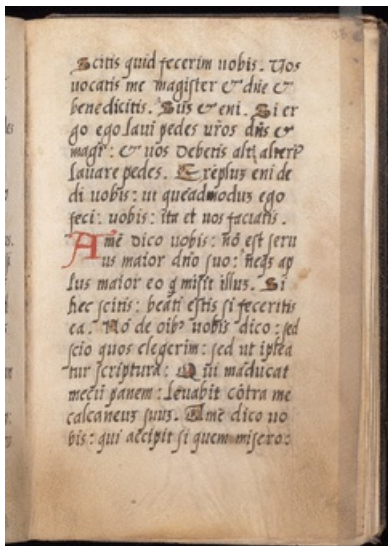 Scitis quid fecerim uobis. Uos
uocatis me magister & dn̄e &
benedicitis. Suꝫ & eni. Si er
go ego laui pedes ur̄os dn̄s &
magr̄: & uos debetis alt̄ alteriꝰ
lauare pedes. Exēpluꝫ eni de
di uobis: ut queadmoduꝫ ego
feci: uobis: ita et uos faciatis.
Amē dico uobis: nō est seru
us maior dn̄o suo: neqꝫ ap
lus maior eo q̄ misit illuꝫ. Si
hec scitis: beati estis si feceritis
ea. Nō de oibꝰ uobis dico: sed
scio quos elegerim: sed ut iplea
tur scriptura: Qui māducat
mecū panem: leuabit cōtra me
calcaneuꝫ suuꝫ. Amē dico uo
bis: qui accipit si quem misero: